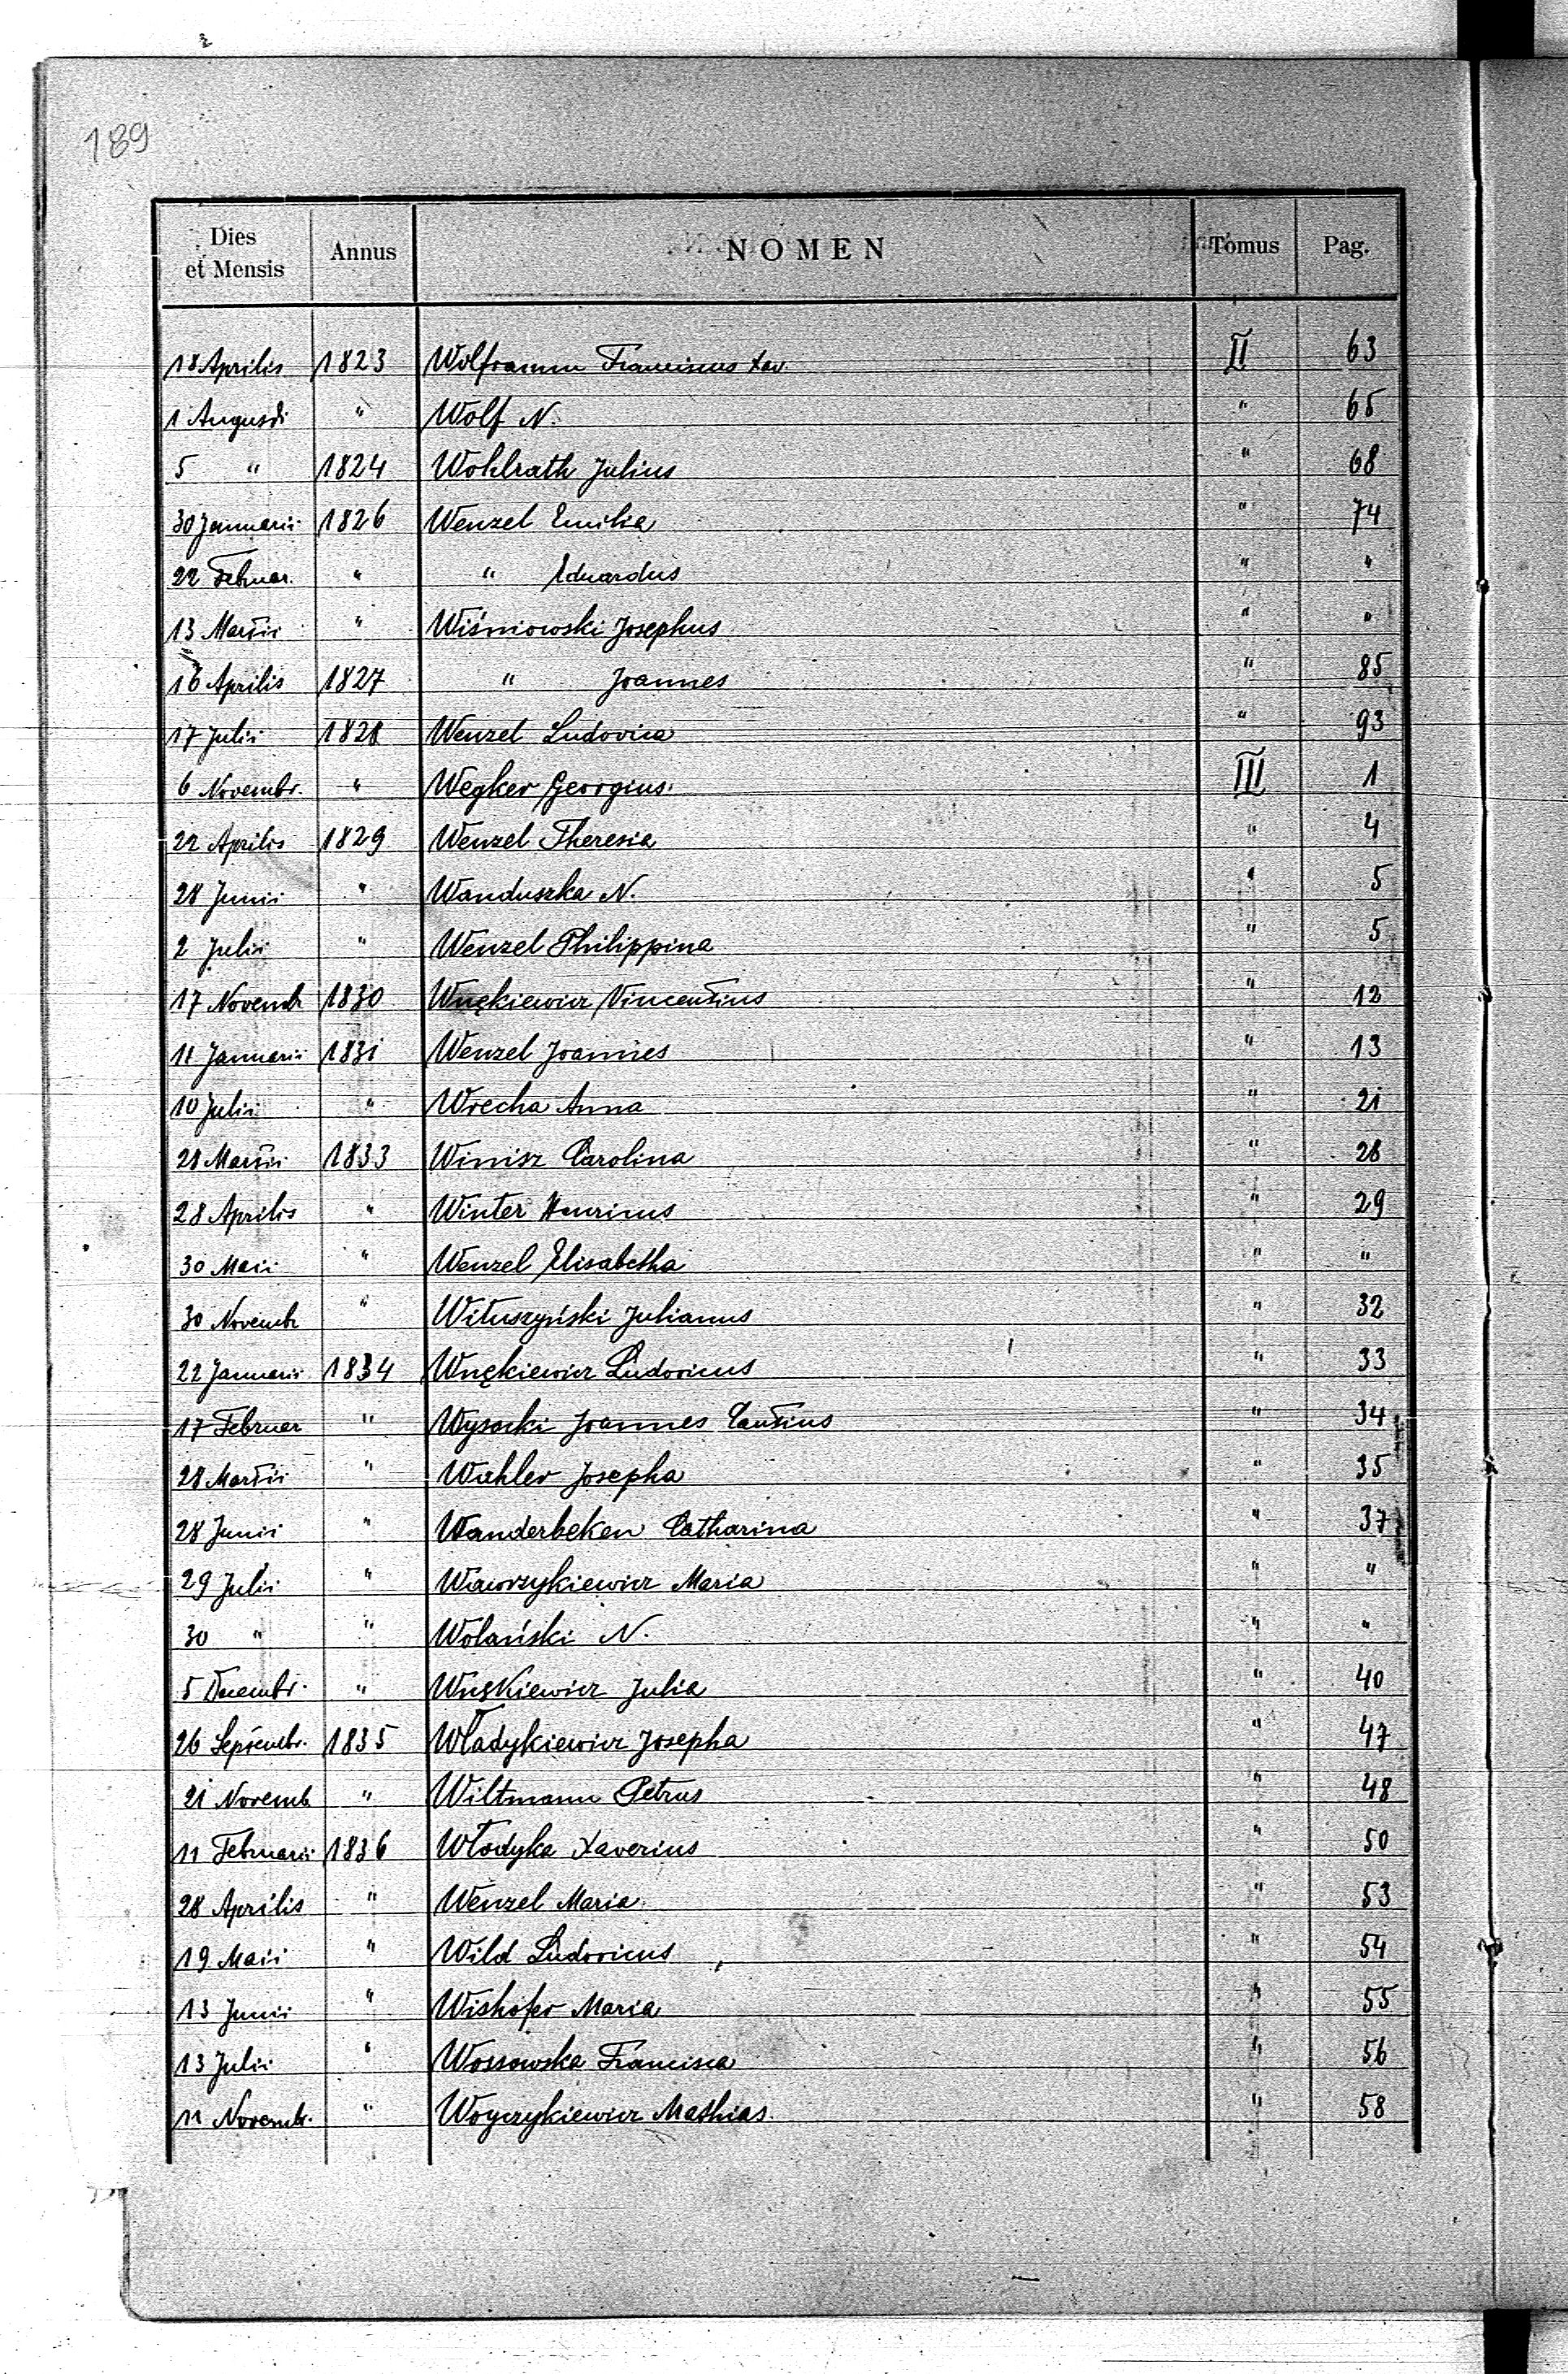 189
Dies et Mensis Annus NOMEN Tomus Pag.
18 Aprilis 1823 Wolframm Franciscus Xav. II 63
1 Augusti " Wolf N. " 65
5 " 1824 Wohlrath Julius " 68
30 Januarii 1826 Wenzel Emilia " 74
22 Februar. " " Eduardus " "
13 Martii " Wiśniowski Josephus " "
16 Aprilis 1827 " Joannes " 85
17 Julii 1828 Wenzel Ludovica " 93
6 Novembr. " Wegker Georgius III 1
22 Aprilis 1829 Wenzel Theresia " 4
28 Junii " Wanduszka N. " 5
2 Julii " Wenzel Philippina " 5
17 Novemb 1830 Wnękiewicz Vincentius " 12
11 Januarii 1831 Wenzel Joannes " 13
10 Julii " Wrecha Anna " 21
28 Martii 1833 Winisz Carolina " 28
28 Aprilis " Winter Henricus " 29
30 Maii " Wenzel Elisabetha " "
30 Novemb " Wituszyński Julianus " 32
22 Januarii 1834 Wnękiewicz Ludovicus " 33
17 Februar " Wysocki Joannes Cantius " 34
28 Martii " Wahler Josepha " 35
28 Junii " Wanderbeken Catharina " 37
29 Julii " Wawrzykiewicz Maria " "
30 " " Wolański N. " "
5 Decembr. " Wnękiewicz Julia " 40
26 Septembr. 1835 Władykiewicz Josepha " 47
21 Novemb " Wiltmann Petrus " 48
11 Februarii 1836 Włodyka Xaverius " 50
28 Aprilis " Wenzel Maria " 53
19 Maii " Wild Ludovicus " 54
13 Junii " Wishofer Maria " 55
13 Julii " Wossowska Francisca " 56
11 Novembr. " Woyczykiewicz Mathias " 58